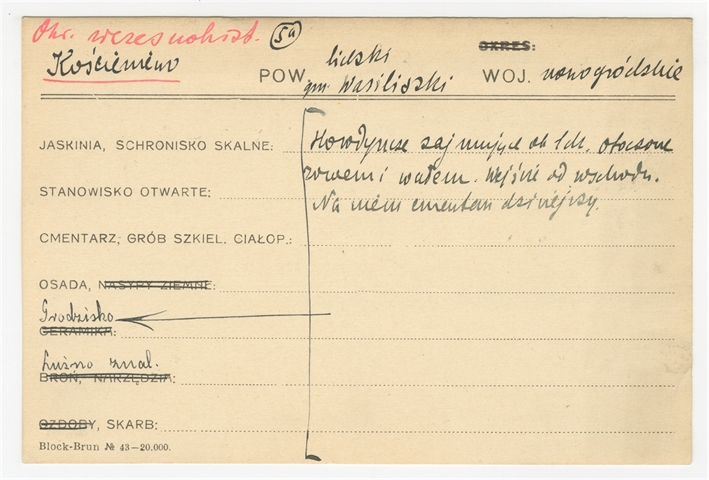 Okr. wczesnohist. 5a OKRES:
Kościeniewo POW. lidzki WOJ. nowogródzkie
gm. Wasiliszki
JASKINIA, SCHRONISKO SKALNE: zajmujące ok 1 ch. otoczone
rowem i wałem. Wejście od wschodu.
STANOWISKO OTWARTE: Na niem cmentarz dzisiejszy.
CMENTARZ, GRÓB SZKIEL. CIAŁOP.:
OSADA, NASYPY ZIEMNE:
Grodzisko
CERAMIKA:
Luźno znal.
BROŃ, NARZĘDZIA:
OZDOBY, SKARB:
Block-Brun № 43—20.000.